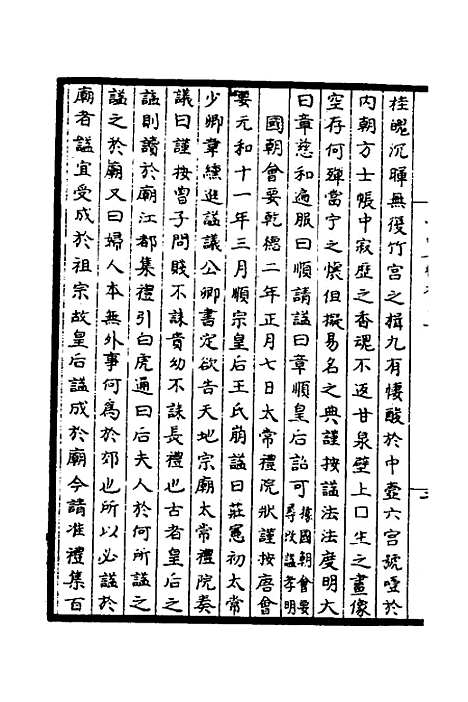 桂魄沉暉無復竹宮之揖九有悽酸於中壼六宮號噎於
內朝方士帳中寂歷之香魂不返甘泉壁上口生之畫像
空存何殫當宁之懷但擬易名之典謹按謚法法度明大
曰章慈和遍服曰順請謚曰章順皇后詔可據國朝會要尋改謚孝明
國朝會要乾德二年正月七日太常禮院狀謹按唐會
要元和十一年三月順宗皇后王氏崩謚曰莊憲初太常
少卿韋纁進謚議公卿書定欲告天地宗廟太常禮院奏
議曰謹按曾子問賤不誄貴幼不誄長禮也古者皇后之
謚則讀於廟江都集禮引白虎通曰后夫人於何所謚之
謚之於廟又曰婦人本無外事何爲於郊也所以必謚於
廟者謚宜受成於祖宗故皇后謚成於廟今請准禮集百